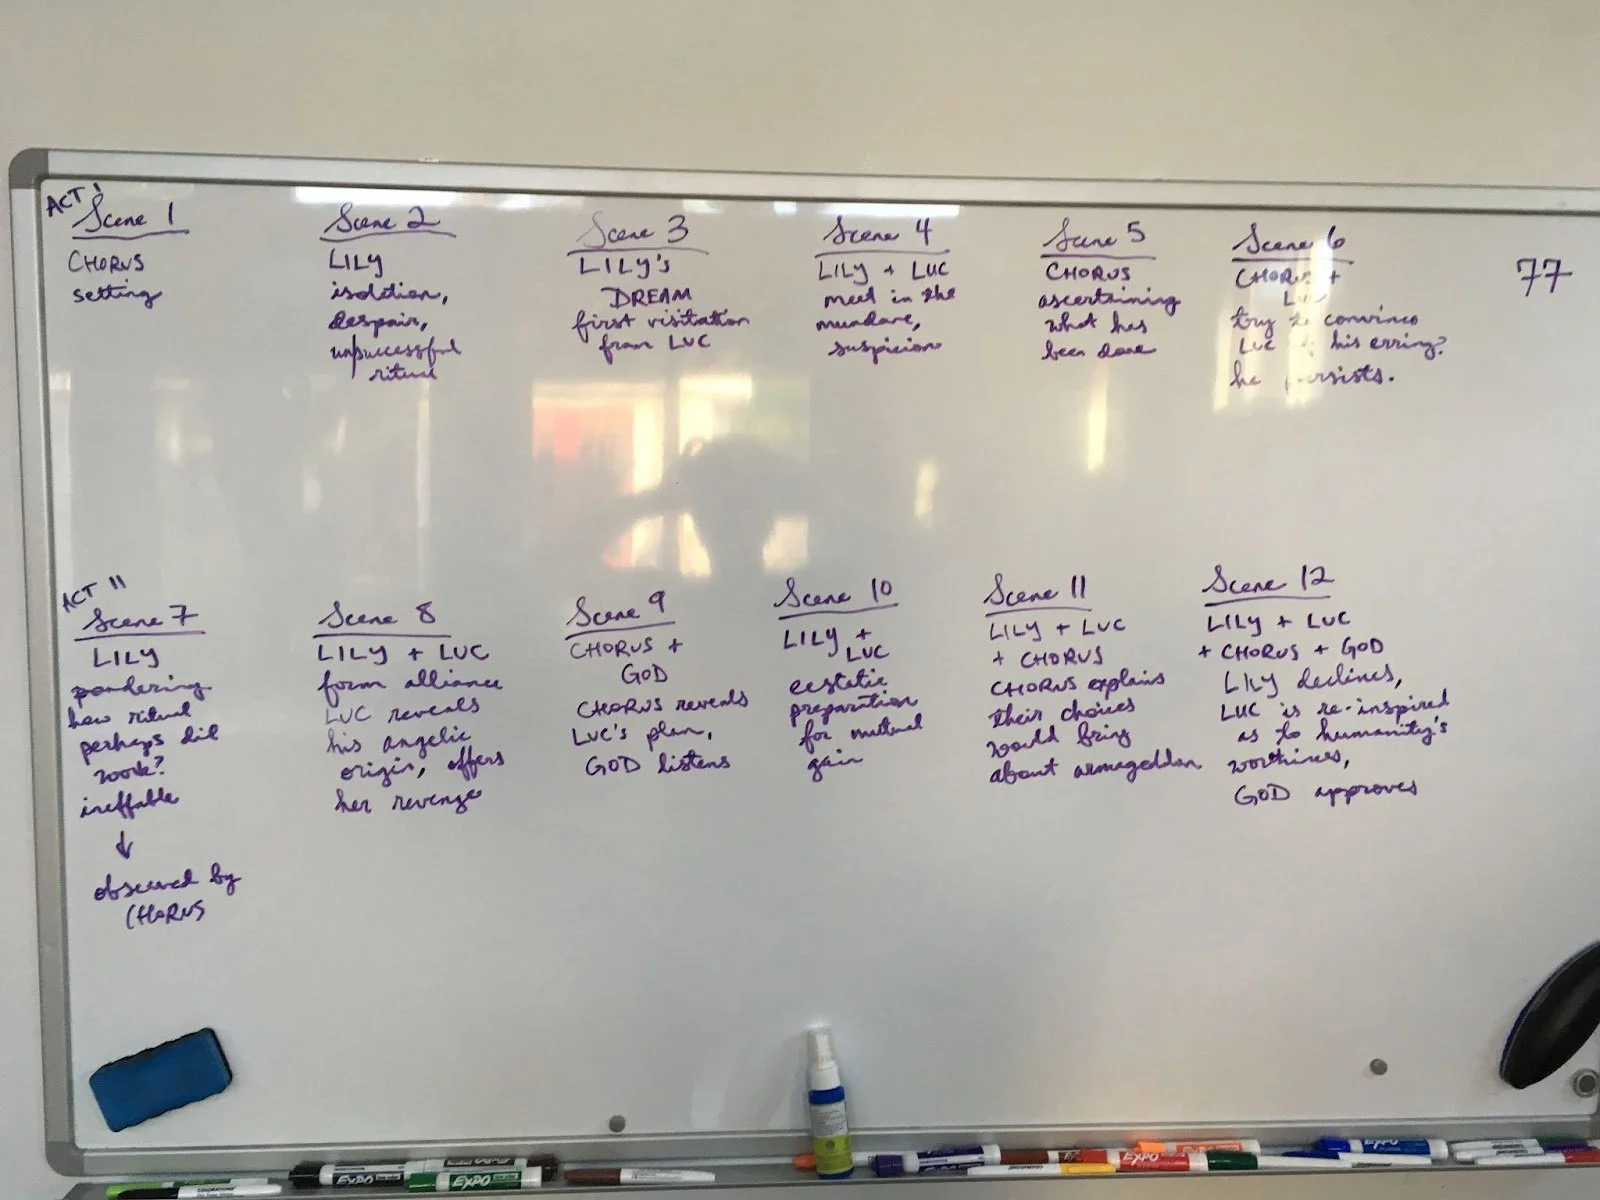 ACT I
Scene 1
CHORUS
setting
Scene 2
LILY
isolation,
despair,
unsuccessful
ritual
Scene 3
LILY's
DREAM
first visitation
from LUC
Scene 4
LILY + LUC
meet in the
mundane,
suspicion
Scene 5
CHORUS
ascertaining
what has
been done
Scene 6
CHORUS +
LUC
try to convince
LUC of his erring?
he persists.
77
ACT II
Scene 7
LILY
pondering
how ritual
perhaps did
work?
ineffable
↓
observed by
CHORUS
Scene 8
LILY + LUC
form alliance
LUC reveals
his angelic
origin, offers
her revenge
Scene 9
CHORUS +
GOD
CHORUS reveals
LUC's plan,
GOD listens
Scene 10
LILY +
LUC
ecstatic
preparation
for mutual
gain
Scene 11
LILY + LUC
+ CHORUS
CHORUS explains
their choices
would bring
about armageddon
Scene 12
LILY + LUC
+ CHORUS + GOD
LILY declines,
LUC is re-inspired
as to humanity's
worthines,
GOD approves
EXPO
EXPO
EXPO
EXPO
EXPO